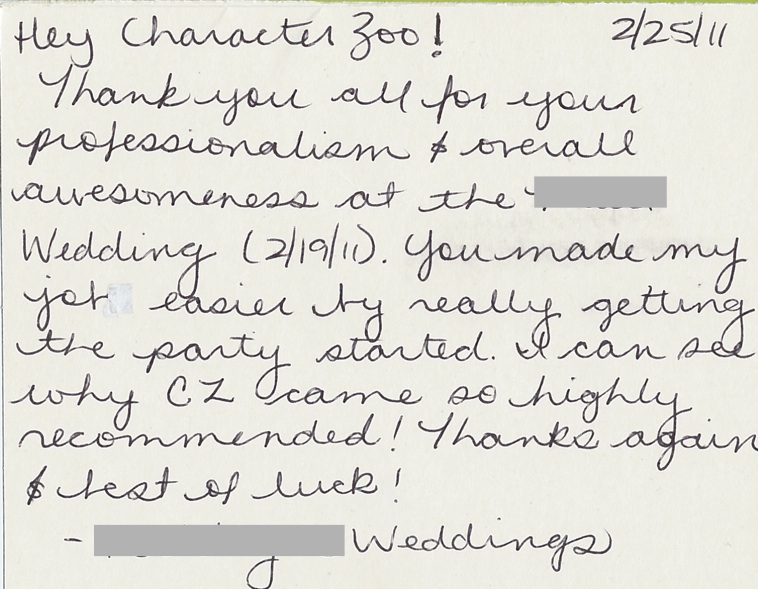 Hey Character Zoo! 2/25/11
Thank you all for your
professionalism & overall
awesomeness at the
Wedding (2/19/11). You made my
job easier by really getting
the party started. I can see
why CZ came so highly
recommended! Thanks again
& best of luck!
- Weddings